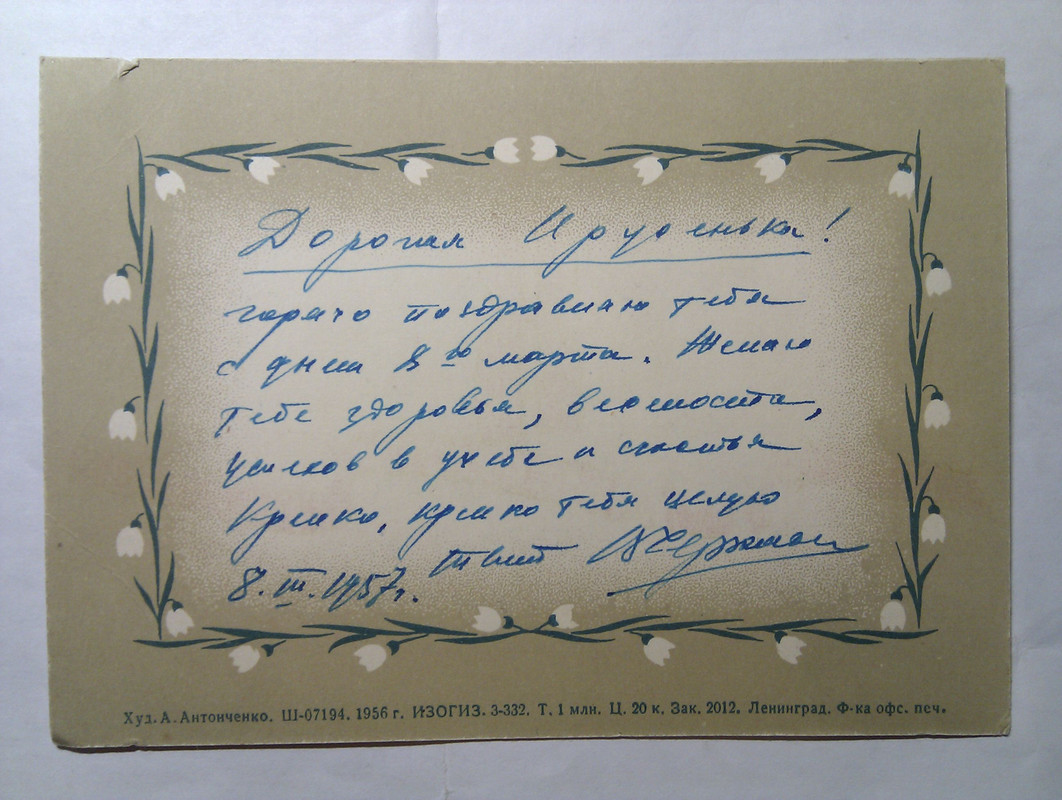 Дорогая Ирусенька!
горячо поздравляю тебя
с днем 8го марта. Желаю
тебе здоровья, веселости,
успехов в учебе и счастья
Крепко, крепко тебя целую
твой
8.III.1957г.
Худ. А. Антонченко. Ш-07194. 1956 г. ИЗОГИЗ. 3-332. Т. 1 млн. Ц. 20 к. Зак. 2012. Ленинград. Ф-ка офс. печ.